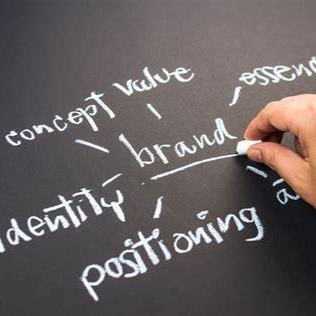 concept value essen
brand
identity
positioning a